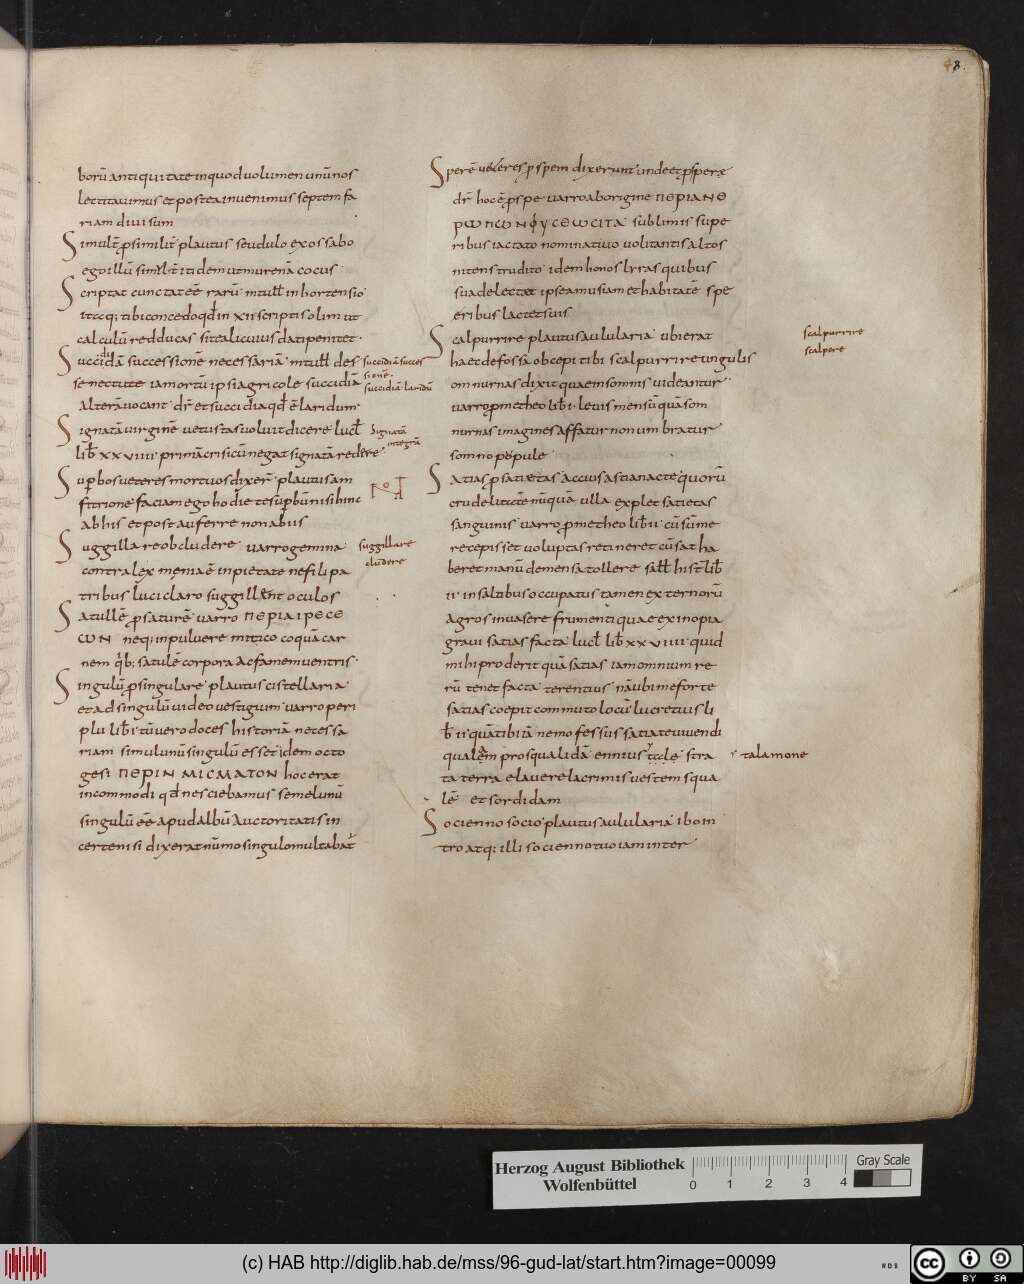 48.
borū antiquitate inquod uolumen unū nos
lectitauimus et postea inuenimus septem fa
riam diuisum
Simult̄ ꝓ similit̄ plautus seudulo ex ossabo
ego illū similit̄ itidem ut murenā cocus
Scriptat cunctat eē rarū m tull in hortensio
itaq; tibi concedo qd in xii scriptis olim ut
calculū redducas si te alicuius dati penitet.
Succidiā successionē necessariā m tull de s
senectute iam ortū ipsi agricole succidiā
alterā uocant dr̄ et succidia qd ē laridum
Signatā uirginē uetustas uoluit dicere lucł
lib̄ xxuiiii primā crisi cū negat signatā redere
Suꝑbos ueteres mortuos dixer̄ plautus am
fitrione faciam ego hodie te suꝑbū nisi hinc
abhis et post auferre non abiis
Suggillare obcludere uarro gemina
contra lex meniaē in pietate ne fili pa
tribus luci claro suggillent oculos
Satullē ꝓ saturē uarro ΠΕΡΙΑΙΡΕCΕ
ωΝ neq; in puluere mitico coquā car
nem qb; satulē corpora ac famem uentris
Singulū ꝓ singulare plautus cistellaria
et ad singulū uideo uestigium uarro peri
plu lib̄ i tū uero doces historiā necessa
riam simul unū singulū esset idem octo
gesi ΠΕΡΙΝ ΜΙCΜΑΤΟΝ hoc erat
incommodi qd nesciebamus semel unū
singulū eē apud albū auctoritatis in
certe nisi dixerat nūmo singulo multabat
succidiā succes
sionē
succidiā laridū
Signatā
integrā
suggillare
cludere
Sperē ueteres ꝓ spem dixerunt unde et ꝓspere
dr̄ hoc ē ꝓ spe uarro aborigine ΠΕΡΙΑΝΘ
ΡωΠωΝ φΥCΕωCΙΤΑ sublimis supe
ribus iactato nominatiuo uolitantis altos
nitens trudito idem honos lyras quibus
sua delectet ipse amusiam et habitatē spe
eribus lactet suis
Scalpurrire plautus aulularia ubi erat
haec defossa obcepit ibi scalpurrire ungulis
omnurnas dixit quae in somnis uideantur
uarro ꝓmetheo lib̄ i leuis mensū quā som
nurnas imagines affatur non umbratur
somno popule
Satias ꝓ satietas accius astianacte quorū
crudelitatē nūquā ulla explet satietas
sanguinis uarro ꝓmetheo lib̄ ii cū sūme
recepisset uoluptas retineret cū sat ha
beret manū demensa tollere sall hist lib̄
ii in saltibus occupatus tamen externorū
agros inuasere frumenti quae ex inopia
graui satias facta lucł lib̄ xxuiiii quid
mihi proderit quā satias iam omnium re
rū tenet facta terentius nā ubi me forte
satias coepit commuto locū lucretius li
b̄ ii quā tibi iā nemo fessus satiate uiuendi
qualem pro squalidā ennius tele stra
ta terra elauere lacrimis uestem squa
lē et sordidam
Socienno socio plautus aulularia ibo in
tro atq; illi socienno tuo iam inter
scalpurrire
scalpere
talamone
Herzog August Bibliothek
Wolfenbüttel
0 1 2 3 4
Gray Scale
(c) HAB http://diglib.hab.de/mss/96-gud-lat/start.htm?image=00099
WDB
cc BY SA